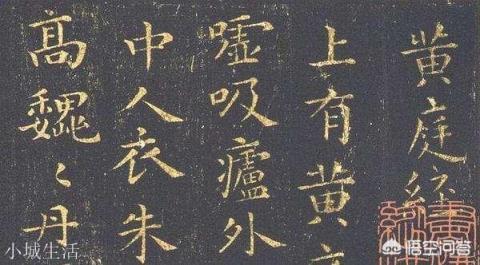 黄庭經
上有黄
嘘吸廬外
中人衣朱
高巍〻丹
小城生活
悟空问答